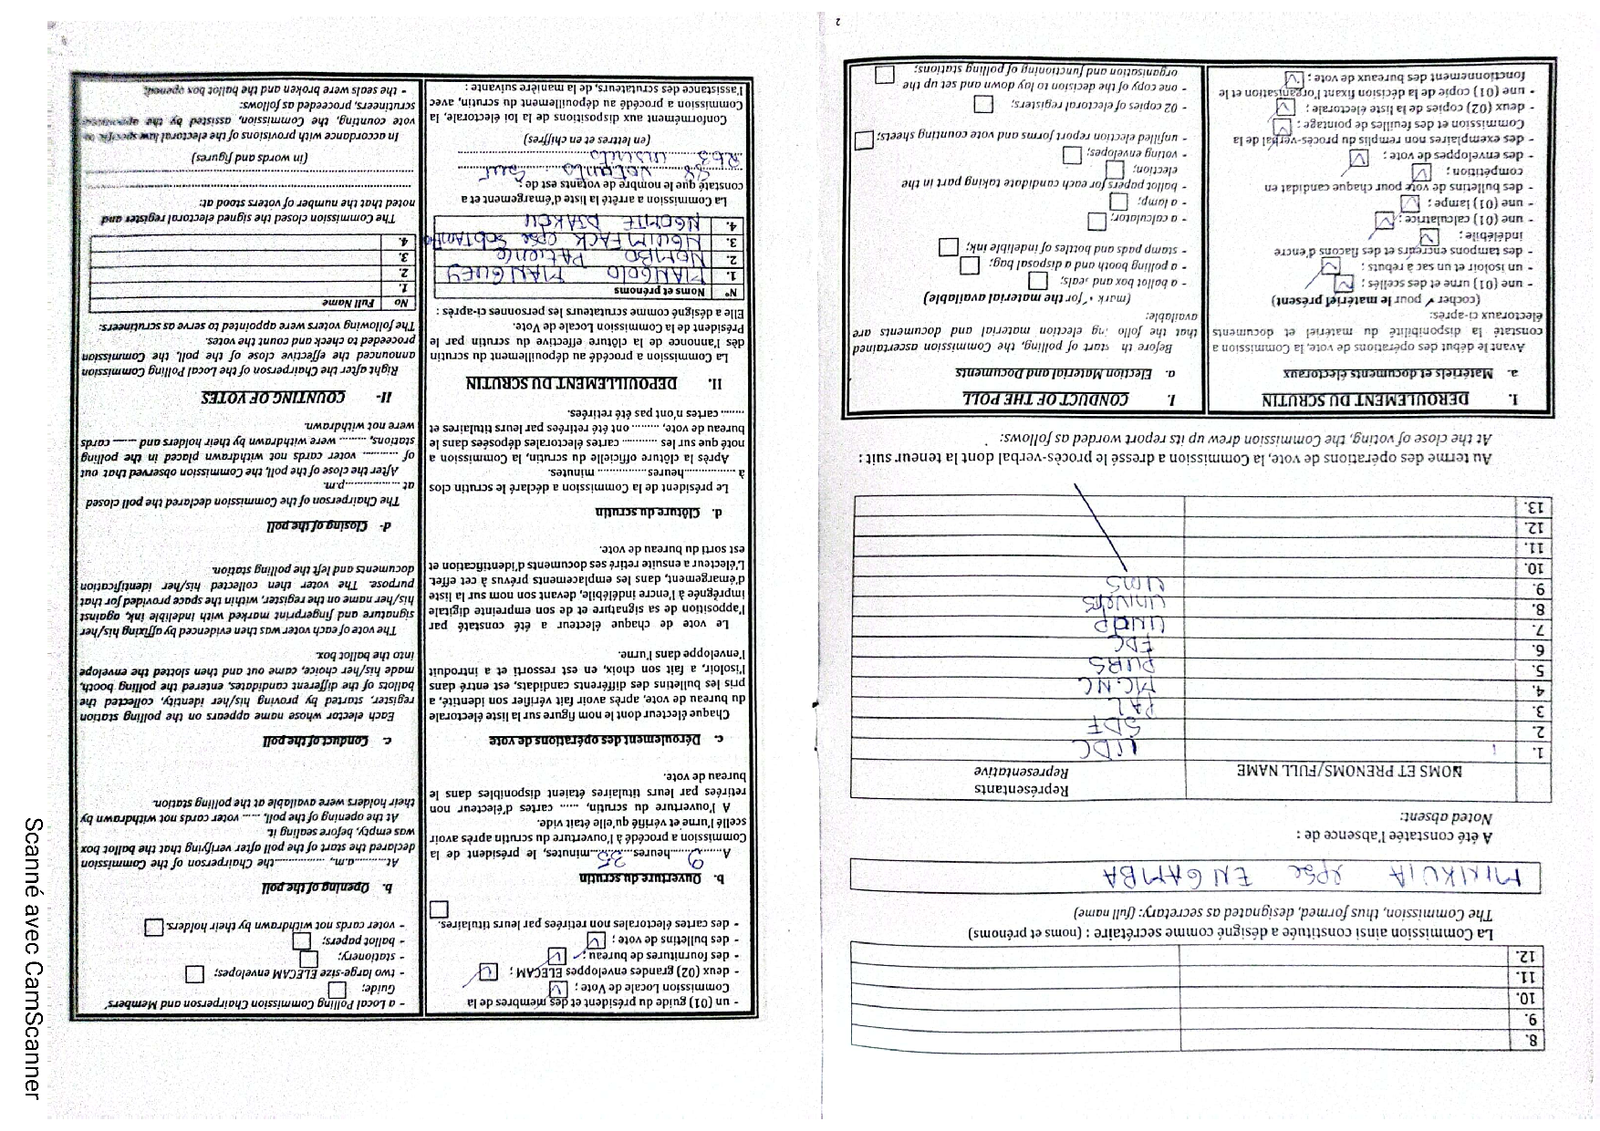 8.
9.
10.
11.
12.
La Commission ainsi constituée a désigné comme secrétaire : (noms et prénoms)
The Commission, thus formed, designated as secretary: (full name)
MINKUIA epse ENGAMBA
A été constatée l'absence de :
Noted absent:
NOMS ET PRENOMS/FULL NAME
Représentants
Representative
1. UDC
2. SDF
3. PAL
4. MCNC
5. PURS
6. FDC
7. UNDP
8. UNIVERS
9. UMS
10.
11.
12.
13.
Au terme des opérations de vote, la Commission a dressé le procès-verbal dont la teneur suit :
At the close of voting, the Commission drew up its report worded as follows:
I. DEROULEMENT DU SCRUTIN
a. Matériels et documents électoraux
Avant le début des opérations de vote, la Commission a
constaté la disponibilité du matériel et documents
électoraux ci-après:
(cocher ✓ pour le matériel présent)
- une (01) urne et des scellés ;
- un isoloir et un sac à rebuts ;
- des tampons encreurs et des flacons d'encre
indélébile ;
- une (01) calculatrice ;
- une (01) lampe ;
- des bulletins de vote pour chaque candidat en
compétition ;
- des enveloppes de vote ;
- des exemplaires non remplis du procès-verbal de la
Commission et des feuilles de pointage ;
- deux (02) copies de la liste électorale ;
- une (01) copie de la décision fixant l'organisation et le
fonctionnement des bureaux de vote ;
I. CONDUCT OF THE POLL
a. Election Material and Documents
Before the start of polling, the Commission ascertained
that the following election material and documents are
available:
(mark ✓ for the material available)
- a ballot box and seals;
- a polling booth and a disposal bag;
- stamp pads and bottles of indelible ink;
- a calculator;
- a lamp;
- ballot papers for each candidate taking part in the
election;
- voting envelopes;
- unfilled election report forms and vote counting sheets;
- 02 copies of electoral registers;
- one copy of the decision to lay down and set up the
organisation and functioning of polling stations;
2
- un (01) guide du président et des membres de la
Commission Locale de Vote ;
- deux (02) grandes enveloppes ELECAM ;
- des fournitures de bureau ;
- des bulletins de vote ;
- des cartes électorales non retirées par leurs titulaires.
b. Ouverture du scrutin
A 9 heures 25 minutes, le président de la
Commission a procédé à l'ouverture du scrutin après avoir
scellé l'urne et vérifié qu'elle était vide.
A l'ouverture du scrutin, ...... cartes d'électeur non
retirées par leurs titulaires étaient disponibles dans le
bureau de vote.
c. Déroulement des opérations de vote
Chaque électeur dont le nom figure sur la liste électorale
du bureau de vote, après avoir fait vérifier son identité, a
pris les bulletins des différents candidats, est entré dans
l'isoloir, a fait son choix, en est ressorti et a introduit
l'enveloppe dans l'urne.
Le vote de chaque électeur a été constaté par
l'apposition de sa signature et de son empreinte digitale
imprégnée à l'encre indélébile, devant son nom sur la liste
d'émargement, dans les emplacements prévus à cet effet.
L'électeur a ensuite retiré ses documents d'identification et
est sorti du bureau de vote.
d. Clôture du scrutin
Le président de la Commission a déclaré le scrutin clos
à ...............heures............... minutes.
Après la clôture officielle du scrutin, la Commission a
noté que sur les .......... cartes électorales déposées dans le
bureau de vote, ......... ont été retirées par leurs titulaires et
....... cartes n'ont pas été retirées.
II. DEPOUILLEMENT DU SCRUTIN
La Commission a procédé au dépouillement du scrutin
dès l'annonce de la clôture effective du scrutin par le
Président de la Commission Locale de Vote.
Elle a désigné comme scrutateurs les personnes ci-après :
N° Noms et prénoms
1. MANGOLO MANGUEY
2. NOMBO PATIENCE
3. NGUIMFACK epse SOBTAMFO
4. NGOMTE DJAKOU
La Commission a arrêté la liste d'émargement et a
constaté que le nombre de votants est de :
98 votants sur
263 inscrits
(en lettres et en chiffres)
Conformément aux dispositions de la loi électorale, la
Commission a procédé au dépouillement du scrutin, avec
l'assistance des scrutateurs, de la manière suivante :
- a Local Polling Commission Chairperson and Members'
Guide;
- two large-size ELECAM envelopes;
- stationery;
- ballot papers;
- voter cards not withdrawn by their holders.
b. Opening of the poll
At..........a.m., ................the Chairperson of the Commission
declared the start of the poll after verifying that the ballot box
was empty, before sealing it.
At the opening of the poll, ..... voter cards not withdrawn by
their holders were available at the polling station.
c. Conduct of the poll
Each elector whose name appears on the polling station
register, started by proving his/her identity, collected the
ballots of the different candidates, entered the polling booth,
made his/her choice, came out and then slotted the envelope
into the ballot box.
The vote of each voter was then evidenced by affixing his/her
signature and fingerprint marked with indelible ink, against
his/her name on the register, within the space provided for that
purpose. The voter then collected his/her identification
documents and left the polling station.
d- Closing of the poll
The Chairperson of the Commission declared the poll closed
at ..................p.m.
After the close of the poll, the Commission observed that out
of .......... voter cards not withdrawn placed in the polling
stations, ........ were withdrawn by their holders and ...... cards
were not withdrawn.
II- COUNTING OF VOTES
Right after the Chairperson of the Local Polling Commission
announced the effective close of the poll, the Commission
proceeded to check and count the votes.
The following voters were appointed to serve as scrutineers:
No Full Name
1.
2.
3.
4.
The Commission closed the signed electoral register and
noted that the number of voters stood at:
(in words and figures)
In accordance with provisions of the electoral law specific to
vote counting, the Commission, assisted by the
scrutineers, proceeded as follows:
- the seals were broken and the ballot box opened;
Scanné avec CamScanner